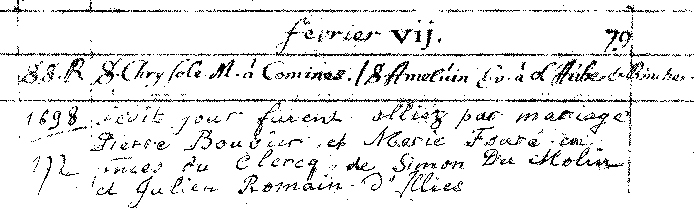 février vij. 79
S.S.R S. Chrysole M. à Comines. / S Amelüin Ev. à
1698 ledit jour furent alliez par mariage
Pierre Bouvier et Marie Fouré en
172 pnces du Clercq, de Simon Du Molin
et Julien Romain d'Allies